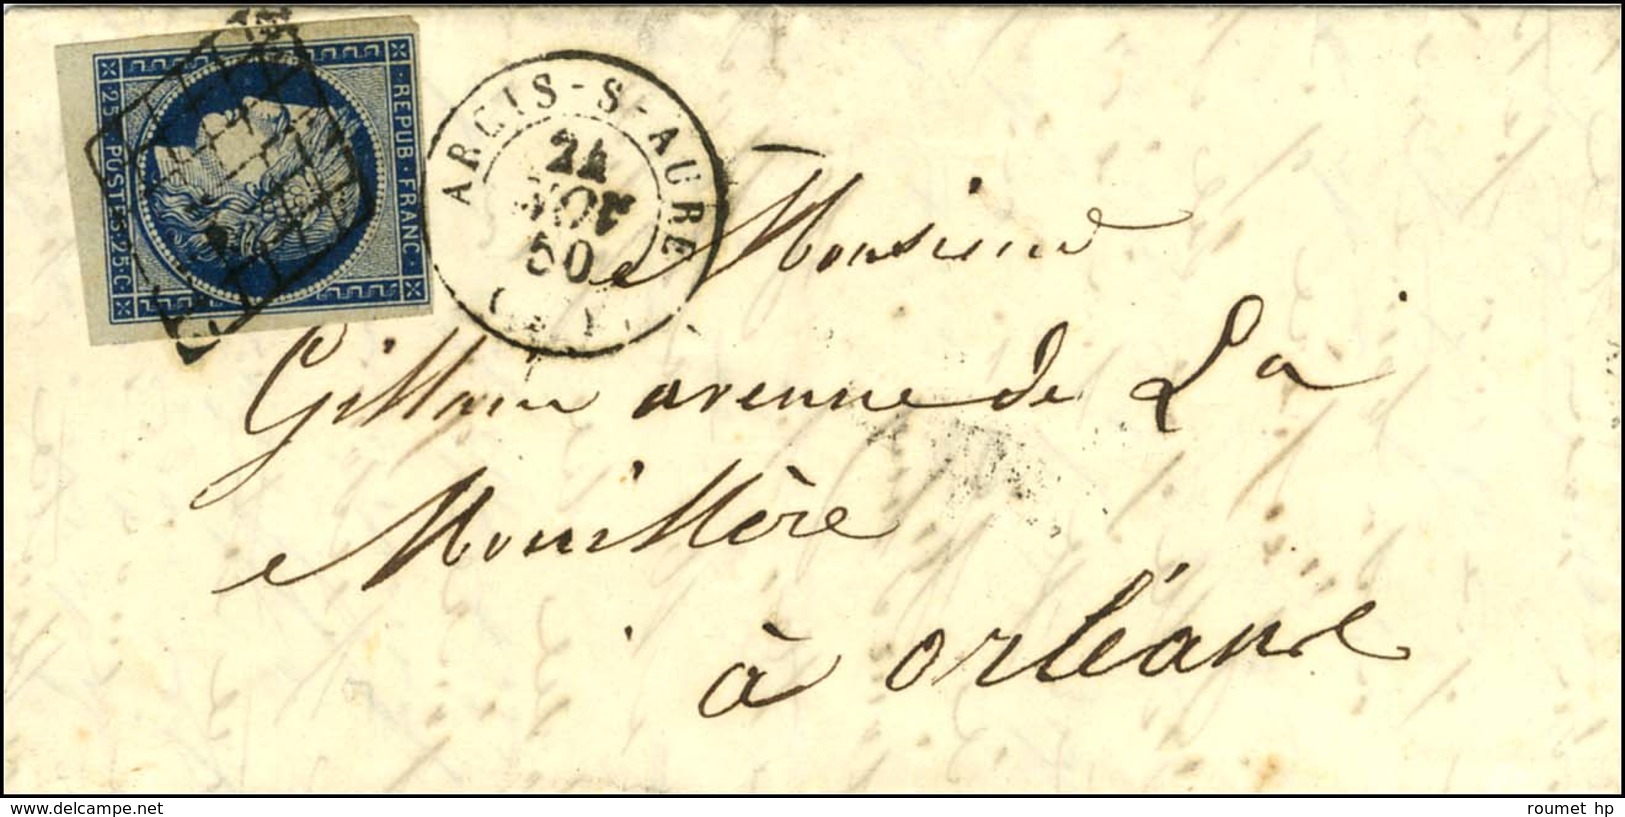 REPUB·FRANC·
·25· POSTES·25·C·
ARCIS-S-AUBE
24
NOV
50
Monsieur
Gillain avenue de La
Mouillère
à orléans
www.delcampe.net
roumet hp